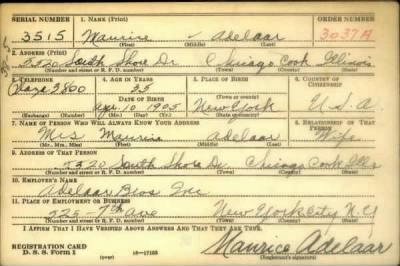 SERIAL NUMBER 1. NAME (Print) ORDER NUMBER
3515 Maurice - Adelaar 3037A
(First) (Middle) (Last)
2. ADDRESS (Print)
5320 South Shore Dr Chicago Cook Illinois
(Number and street or R. F. D. number) (Town) (County) (State)
3. TELEPHONE 4. AGE IN YEARS 5. PLACE OF BIRTH 6. COUNTRY OF CITIZENSHIP
3800 35 New York U.S.A.
DATE OF BIRTH
10 1905
(Exchange) (Number) (Mo.) (Day) (Yr.) (Town or county) (State or country)
7. NAME OF PERSON WHO WILL ALWAYS KNOW YOUR ADDRESS 8. RELATIONSHIP OF THAT PERSON
Mrs Maurice Adelaar Wife
(Mr., Mrs., Miss) (First) (Middle) (Last)
9. ADDRESS OF THAT PERSON
5320 South Shore Dr Chicago Cook Ills
(Number and street or R. F. D. number) (Town) (County) (State)
10. EMPLOYER'S NAME
Adelaar Bros Inc
11. PLACE OF EMPLOYMENT OR BUSINESS
225-7th Ave New York City N.Y
(Number and street or R. F. D. number) (Town) (County) (State)
I AFFIRM THAT I HAVE VERIFIED ABOVE ANSWERS AND THAT THEY ARE TRUE.
REGISTRATION CARD
D. S. S. Form 1 (over) 16-17105 Maurice Adelaar
(Registrant's signature)